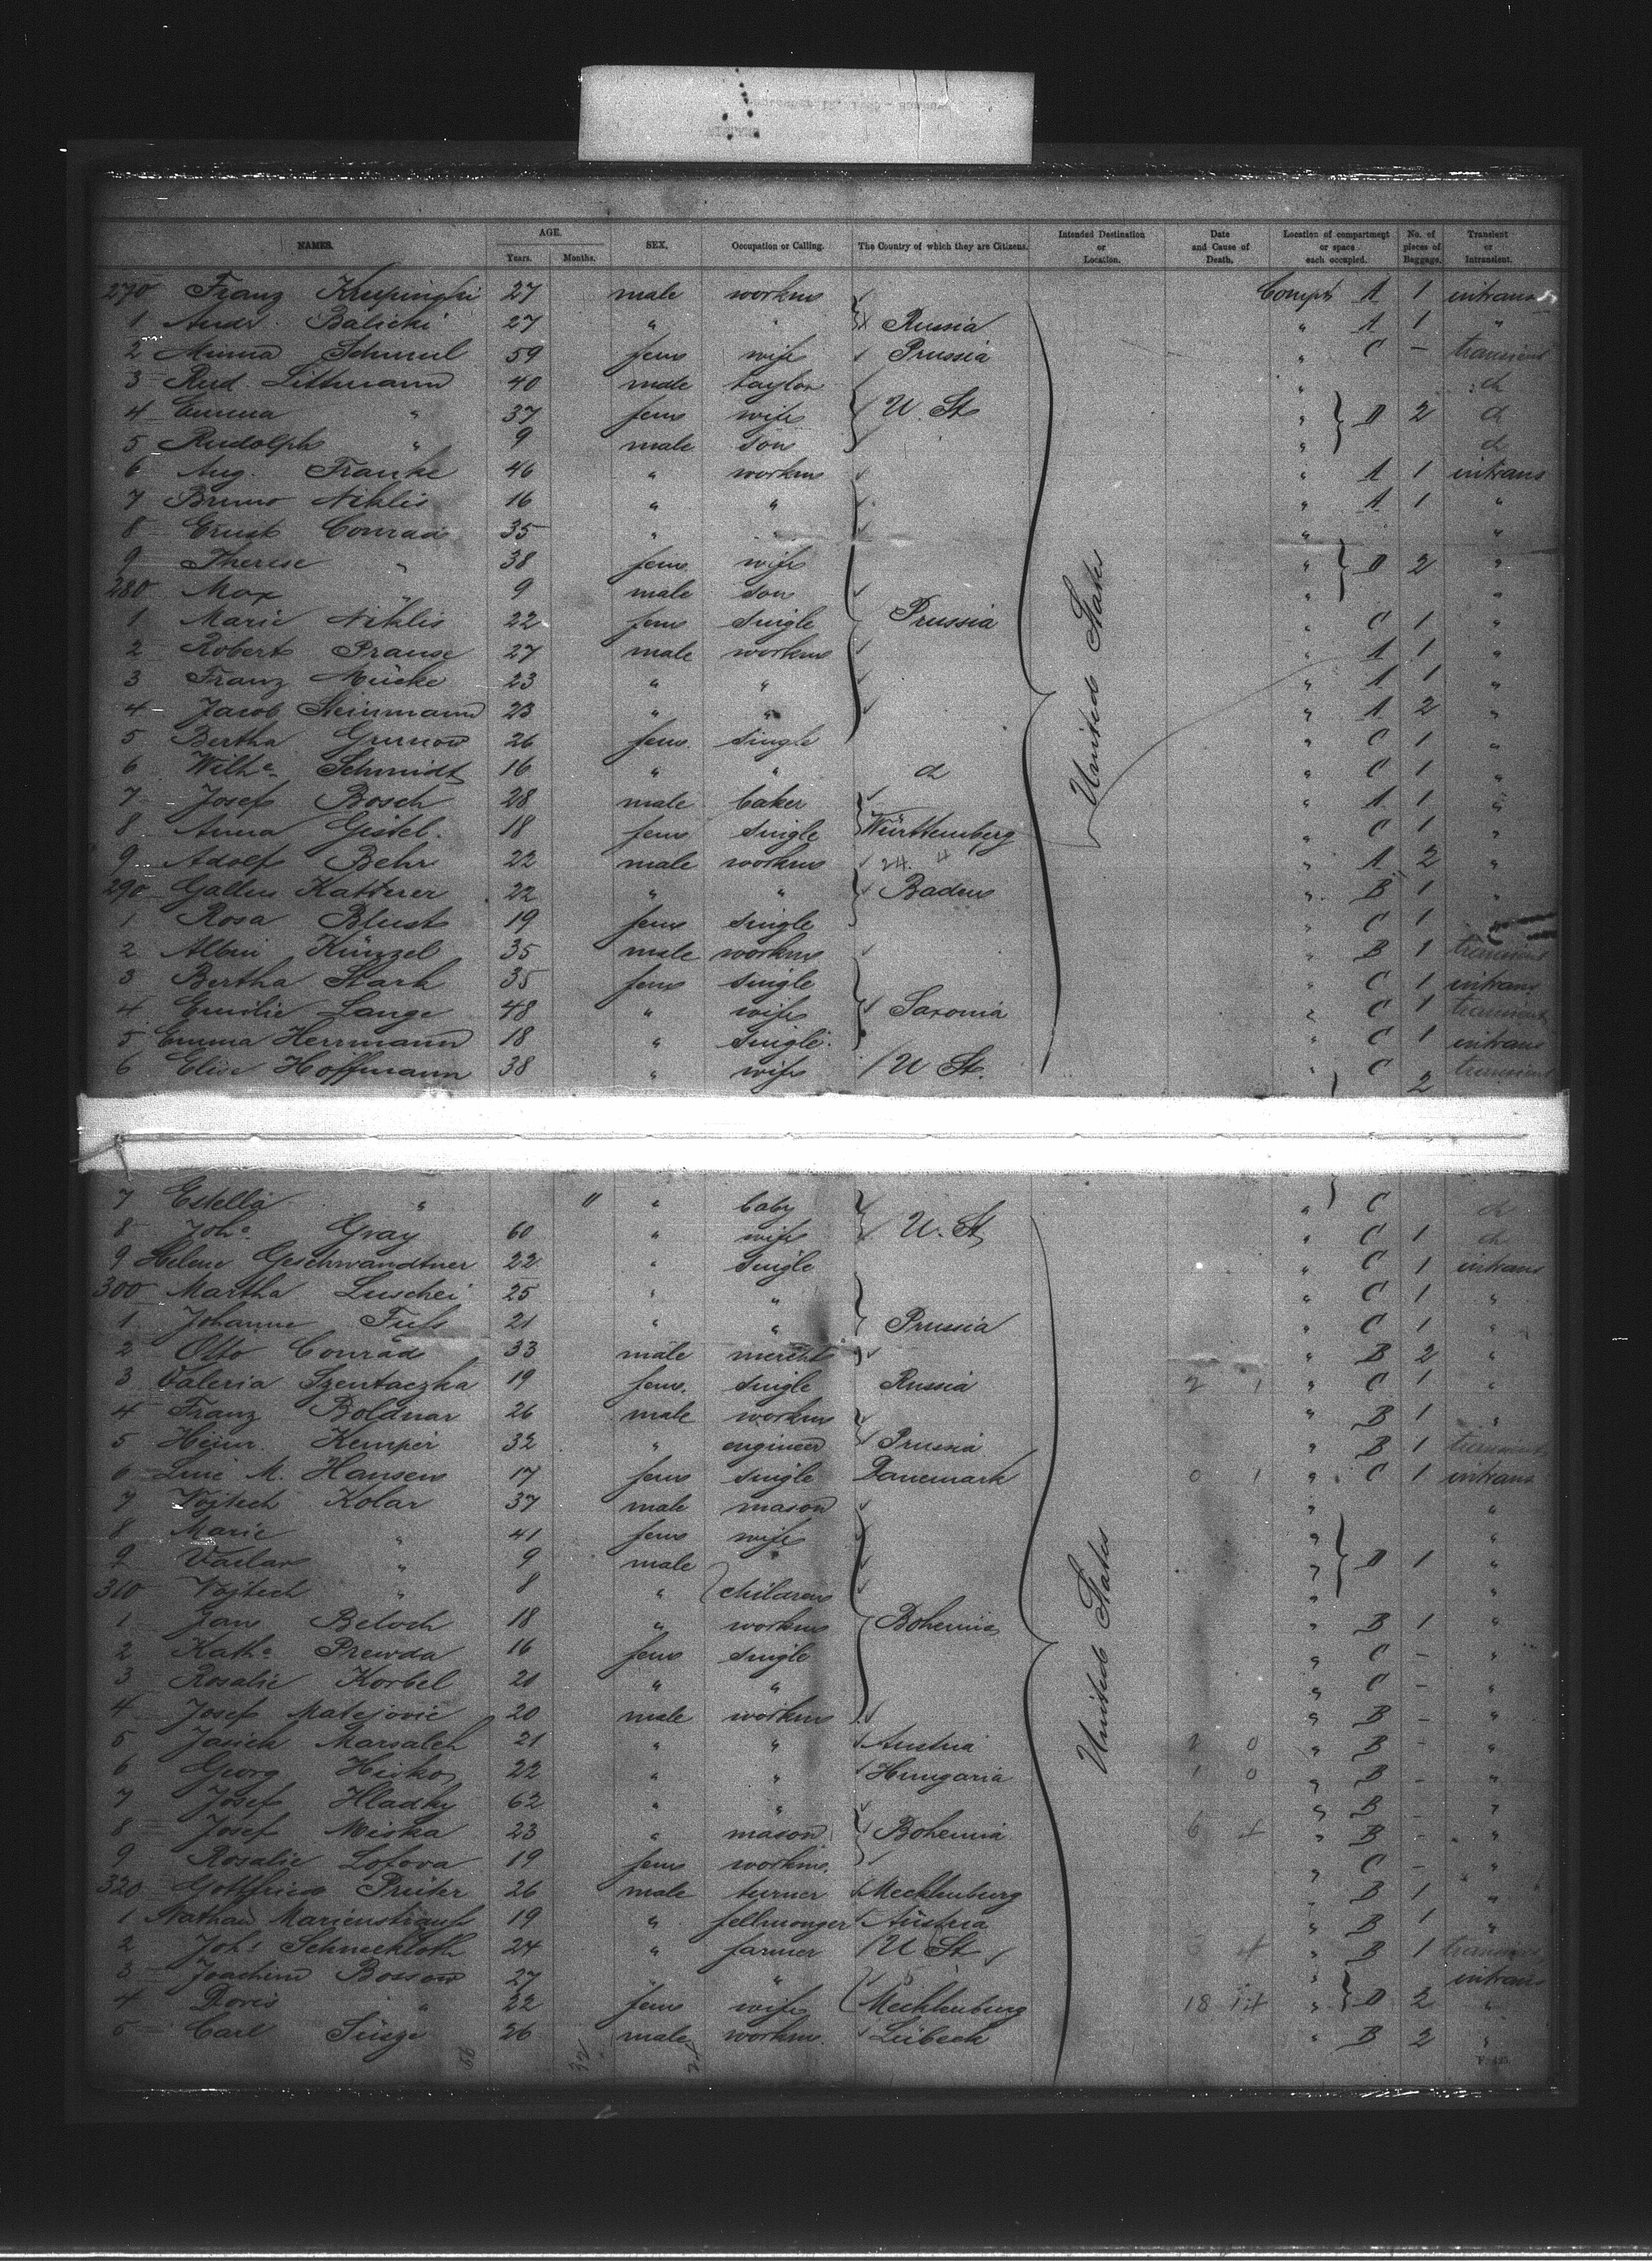 NAMES. AGE. Years. Months. SEX. Occupation or Calling. The Country of which they are Citizens. Intended Destination or Location. Date and Cause of Death. Location of compartment or space each occupied. No. of pieces of Baggage. Transient or Intransient.
270 Franz Krupinski 27 male workm Compt A 1 intrans
1 Andr. Balicki 27 " " Russia " A 1 "
2 Minna Schmul 59 fem wife Prussia " C – transient
3 Rud. Littmann 40 male taylor " d
4 Emma " 37 fem wife U. St. " D 2 d
5 Rudolph " 9 male son " d
6 Aug. Franke 46 " workm " A 1 intrans
7 Bruno Nihlis 16 " " " A 1 "
8 Ernst Conrad 35 " " " "
9 Therese " 38 fem wife " D 2 "
280 Max " 9 male son " "
1 Marie Nihlis 22 fem single Prussia " C 1 "
2 Robert Prause 27 male workm " A 1 "
3 Franz Mücke 23 " " " A 1 "
4 Jacob Steinmann 23 " " " A 2 "
5 Bertha Grunow 26 fem single " C 1 "
6 Wilhe Schmidt 16 " " d " C 1 "
7 Josef Bosch 28 male baker " A 1 "
8 Anna Gistel 18 fem single Württemberg " C 1 "
9 Adolf Behr 22 male workm 24. 4 " A 2 "
290 Gallus Katterer 22 " " Baden " B 1 "
1 Rosa Blust 19 fem single " C 1
2 Albin Künzel 35 male workm " B 1 transient
3 Bertha Stark 35 fem single " C 1 intrans
4 Emilie Lange 48 " wife Saxonia " C 1 transient
5 Emma Herrmann 18 " single " C 1 intrans
6 Elise Hoffmann 38 " wife U St. " C 2 transient
United States
7 Estella " 11 " baby " C d
8 Joh.a Gray 60 " wife U. St. " C 1 d
9 Helene Geschwandtner 22 " single " C 1 intrans
300 Martha Luschei 25 " " " C 1 "
1 Johanne Fuss 21 " " Prussia " C 1 "
2 Otto Conrad 33 male mercht " B 2 "
3 Valeria Szentaczka 19 fem. single Russia 2 1 " C 1 "
4 Franz Boldnar 26 male workm " B 1 "
5 Heinr. Kemper 32 " engineer Prussia " B 1 transient
6 Line M. Hansen 17 fem single Danemark 0 1 " C 1 intrans
7 Vojtech Kolar 37 male mason " "
8 Marie " 41 fem wife " "
9 Vaclav " 9 male " " D 1 "
310 Vojtech " 8 " children " "
1 Jan Beloch 18 " workm Bohemia " B 1 "
2 Kath.a Prewda 16 fem single " C – "
3 Rosalie Korbel 21 " " " C – "
4 Josef Matejovic 20 male workm " B – "
5 Jasick Marsaleh 21 " " Austria 2 0 " B – "
6 Georg Hisko 22 " " Hungaria 1 0 " B – "
7 Josef Hladky 62 " " " B – "
8 Josef Miska 23 " mason Bohemia 6 " B – "
9 Rosalie Lotova 19 fem workm. " C – "
320 Gottfried Prüter 26 male turner Mecklenburg " B 1 "
1 Nathan Marienstrauss 19 " fellmonger Austria " B 1 "
2 Joh.s Schneekloth 24 " farmer U St. " B 1 transient
3 Joachim Bossow 27 " " " intrans
4 Doris " 22 fem wife Mecklenburg 18 " D 2 "
5 Carl Süsze 26 male workm. Lübeck " B 2 "
United States